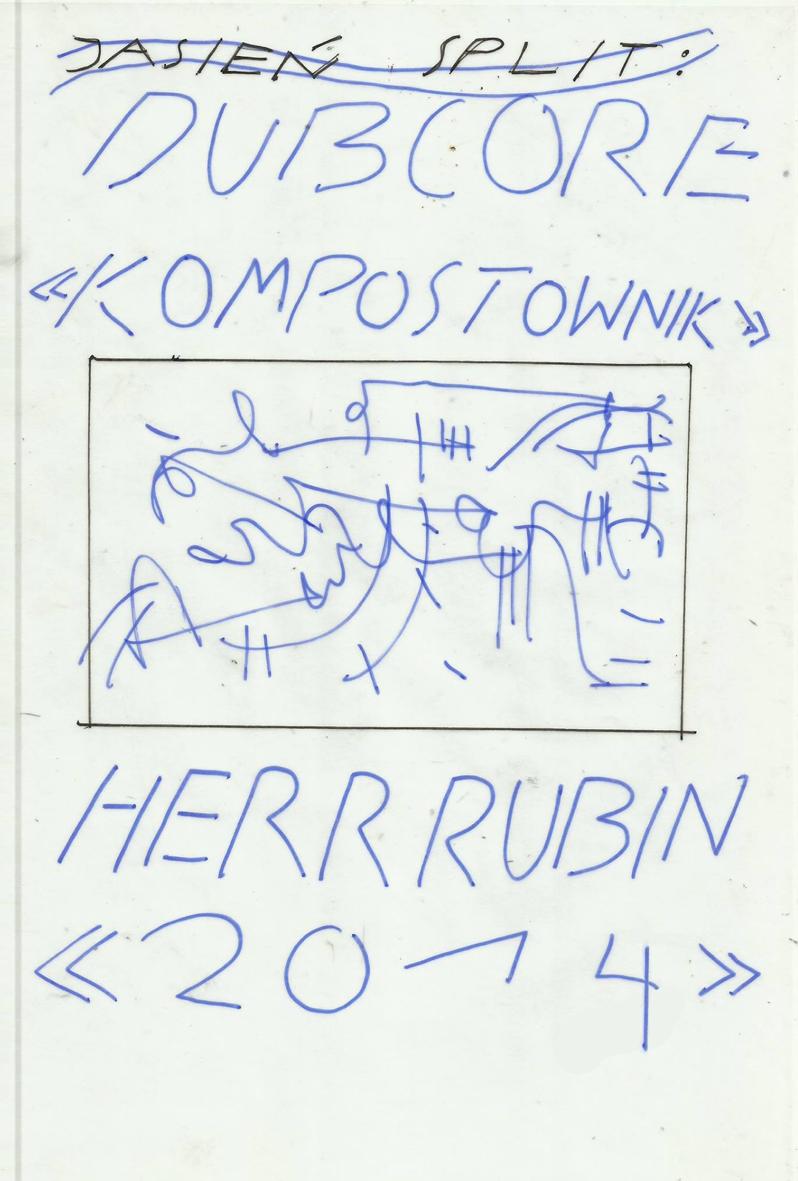 JASIEŃ SPLIT:
DUBCORE
«KOMPOSTOWNIK»
HERR RUBIN
«2014»